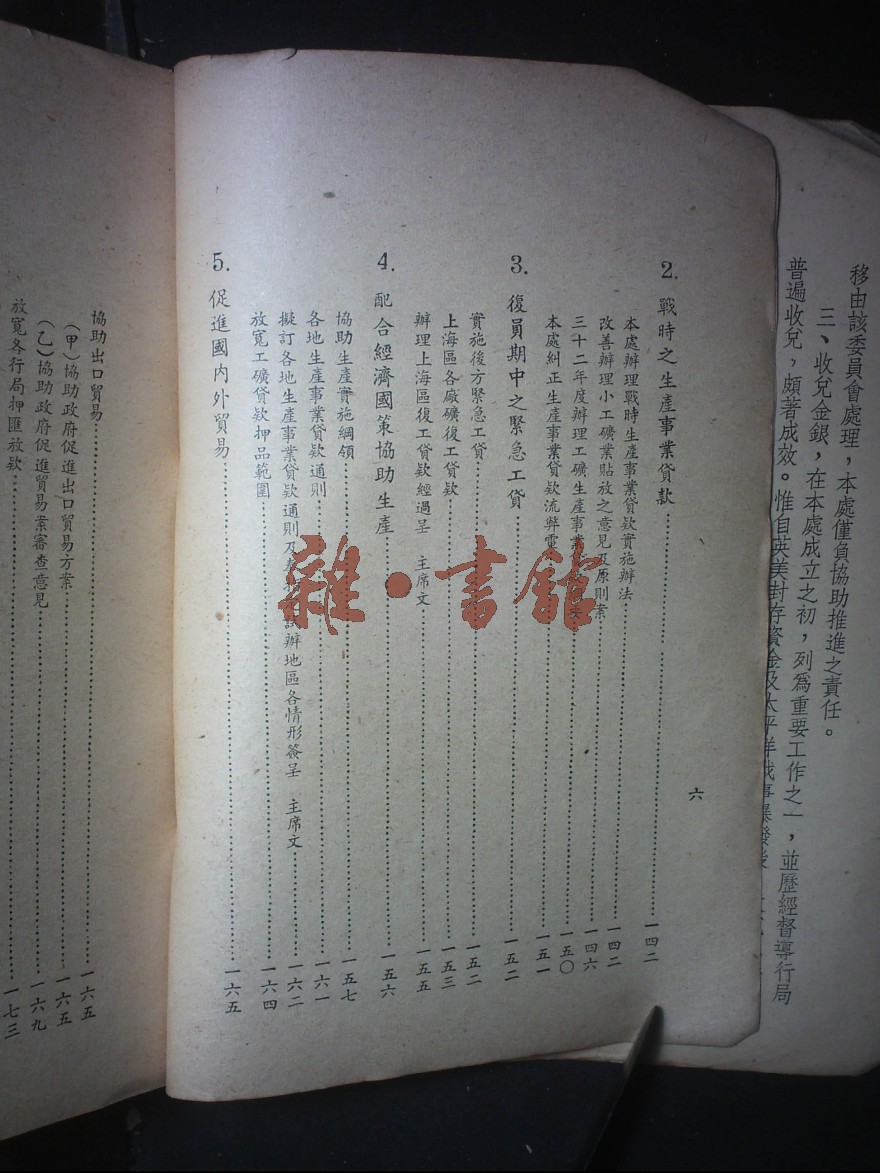 移由該委員會處理，本處僅負協助推進之責任。
三、收兌金銀，在本處成立之初，列爲重要工作之一，並歷經督導行局
普遍收兌，頗著成效。惟自英美封存資金及太平洋戰事爆發後
六
2. 戰時之生產事業貸款 一四二
本處辦理戰時生產事業貸款實施辦法 一四二
改善辦理小工礦業貼放之意見及原則案 一四六
三十二年度辦理工礦生產事業 一五〇
本處糾正生產事業貸款流弊電 一五一
3. 復員期中之緊急工貸 一五二
實施後方緊急工貸 一五二
上海區各廠礦復工貸款 一五三
辦理上海區復工貸款經過呈 主席文 一五五
4. 配合經濟國策協助生產 一五六
協助生產實施綱領 一五七
各地生產事業貸款通則 一六一
擬訂各地生產事業貸款通則及 辦地區各情形簽呈 主席文 一六二
放寬工礦貸款押品範圍 一六四
5. 促進國內外貿易 一六五
協助出口貿易 一六五
（甲）協助政府促進出口貿易方案 一六五
（乙）協助政府促進貿易案審查意見 一六九
放寬各行局押匯放款 一七三
雜·書館